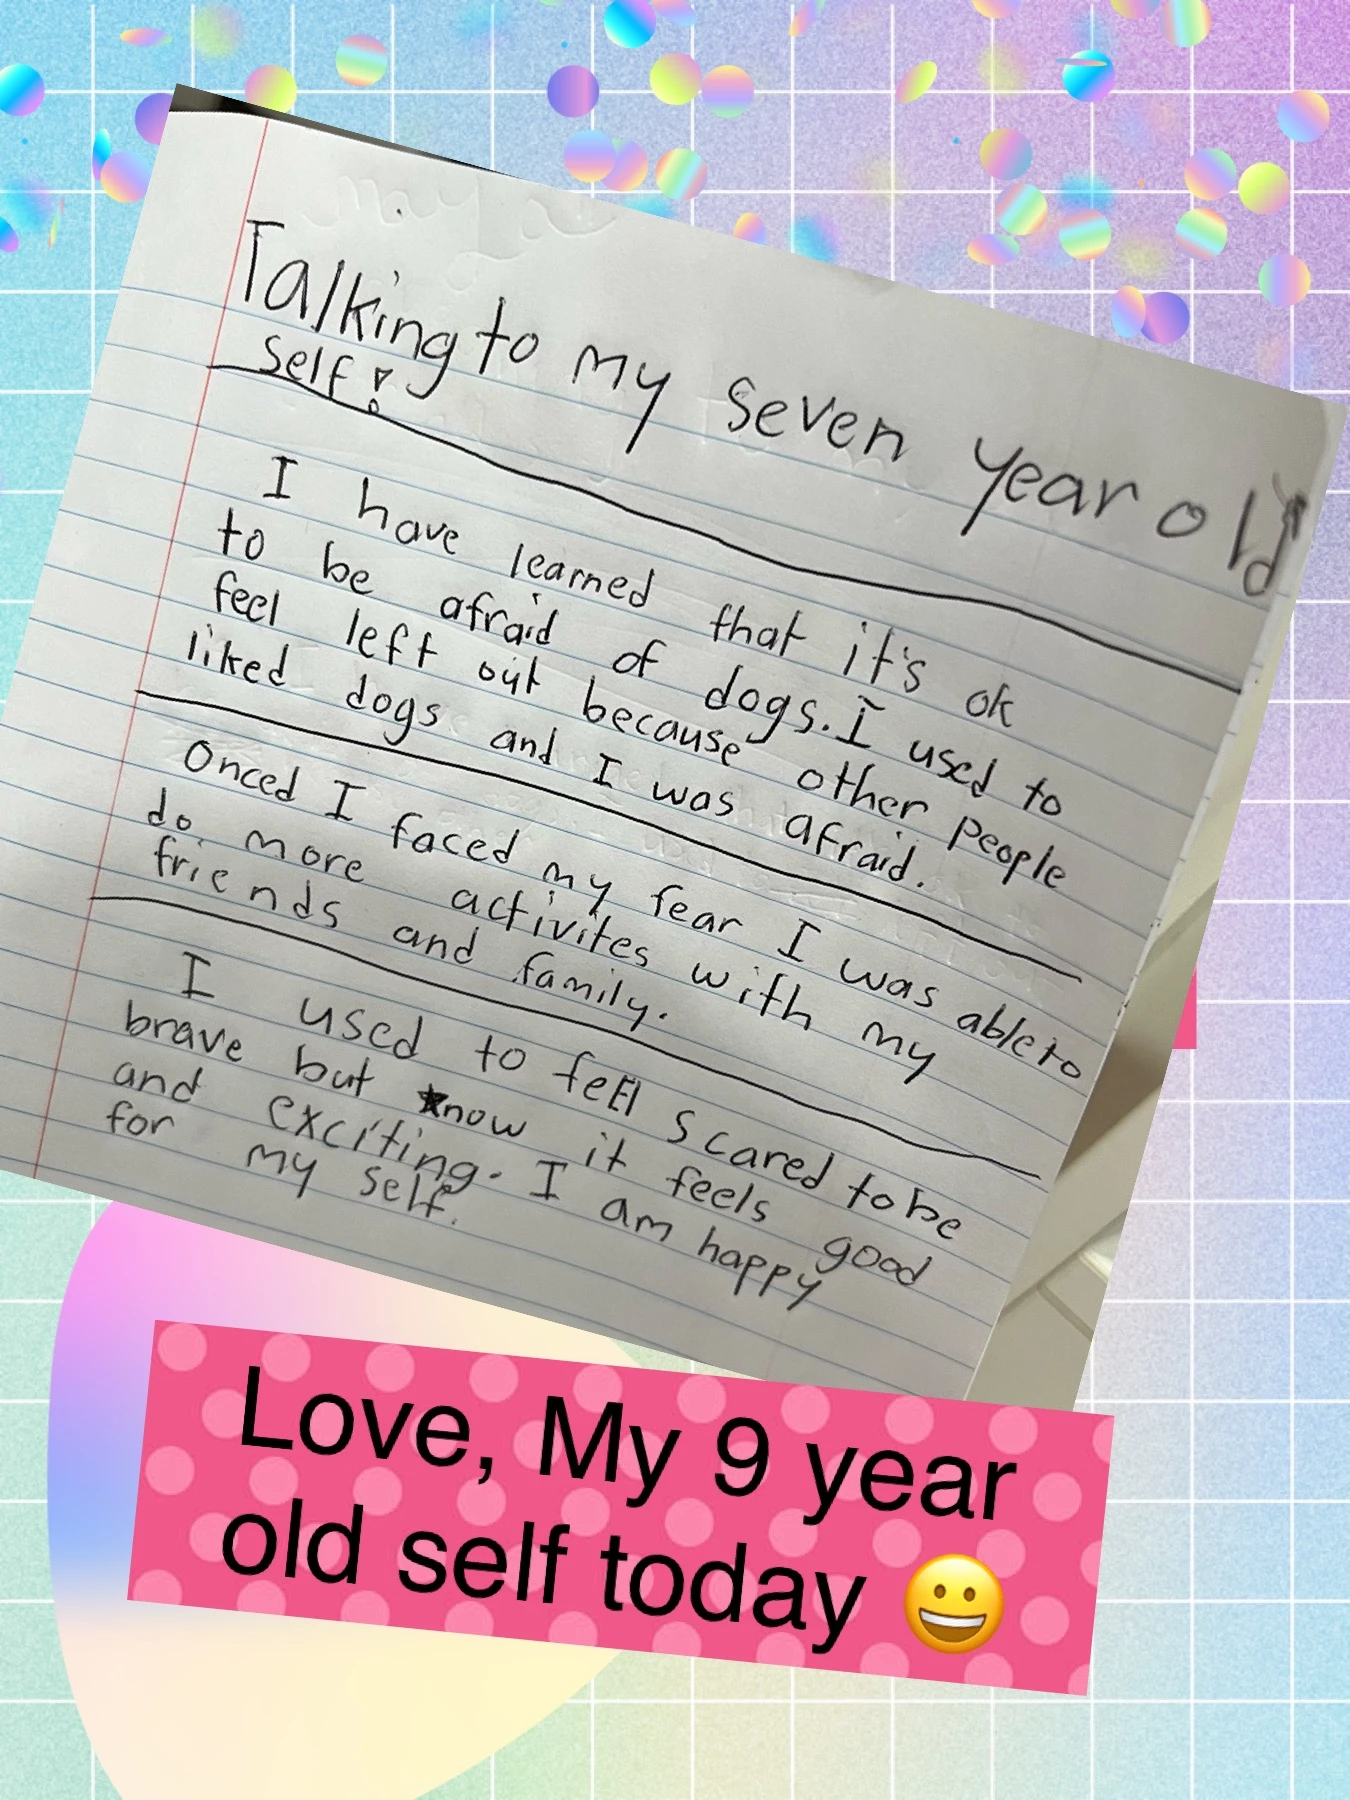 Talking to my seven year old
self!
I have learned that it's ok
to be afraid of dogs. I used to
feel left out because other people
liked dogs and I was afraid.
Onced I faced my fear I was able to
do more activites with my
friends and family.
I used to feel scared to be
brave but now it feels good
and exciting. I am happy
for my self.
Love, My 9 year
old self today 😀